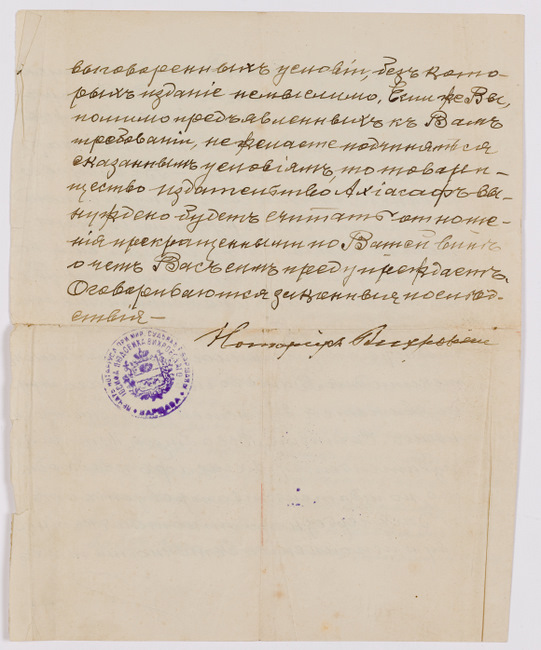 выговоренныхъ условій, безъ кото-
рыхъ изданіе немыслимо. Если же Вы,
помимо предъявленныхъ къ Вамъ
требованій, не желаете подчиняться
сказаннымъ условіямъ, то товари-
щество издательство Ахіасафъ вы-
нуждено будетъ считать отноше-
нія прекращенными по Вашей винѣ
о чемъ Васъ симъ предупреждаетъ.
Оговариваются законныя послѣд-
ствія —
Нотаріусъ
ВАРШАВА